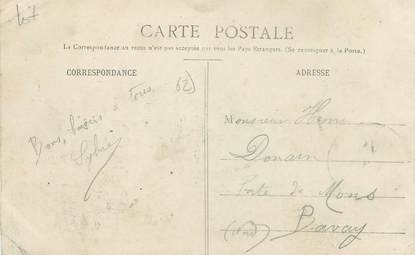 CARTE POSTALE
La Correspondance au recto n'est pas acceptée par tous les Pays Etrangers. (Se renseigner à la Poste.)
CORRESPONDANCE
ADRESSE
(62)
Bons baisers à Tous
Sylvie
Monsieur Henri
Donain
Porte de Mons
(Nord) Bavay